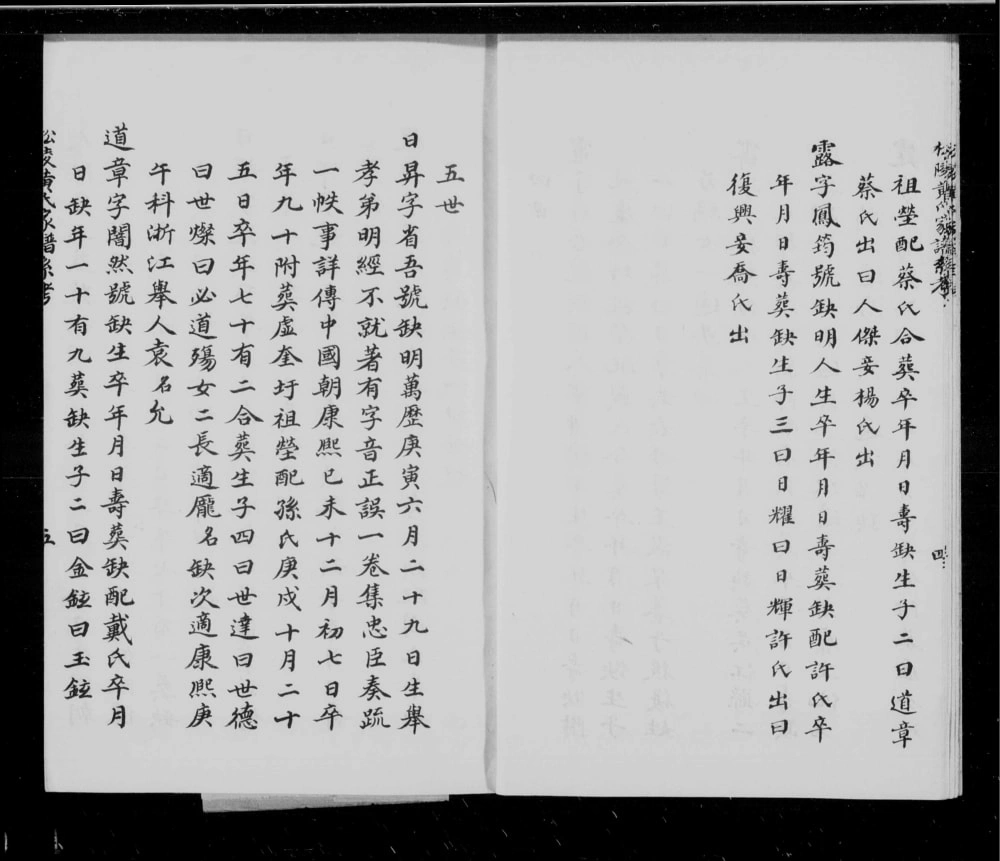 祖塋配蔡氏合葬卒年月日壽缺生子二曰道章
蔡氏出曰人傑妾楊氏出
露字鳳筠號缺明人生卒年月日壽葬缺配許氏卒
年月日壽葬缺生子三曰日耀曰日輝許氏出曰
復興妾喬氏出
四
五世
日昇字省吾號缺明萬歷庚寅六月二十九日生舉
孝弟明經不就著有字音正誤一卷集忠臣奏疏
一帙事詳傳中國朝康熙已未十二月初七日卒
年九十附葬虛奎圩祖塋配孫氏庚戌十月二十
五日卒年七十有二合葬生子四曰世達曰世德
曰世燦曰必道殤女二長適龐名缺次適康熙庚
午科浙江舉人袁名允
道章字闇然號缺生卒年月日壽葬缺配戴氏卒月
日缺年一十有九葬缺生子二曰金鉉曰玉鉉
松陵黃氏家譜系考
五